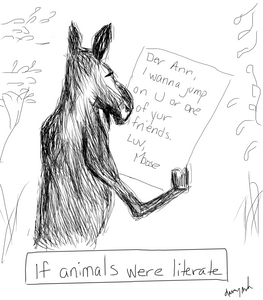 Der Ann,
i wanna jump
on U or one
of yur
friends.
Luv,
Moose
If animals were literate